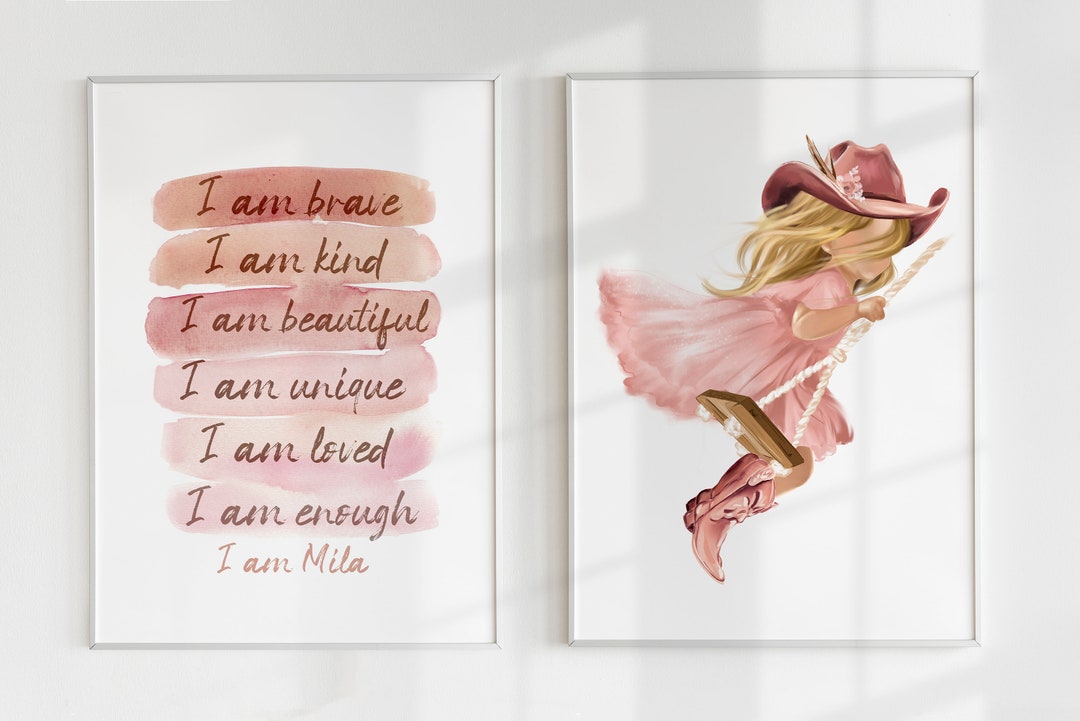 I am brave
I am kind
I am beautiful
I am unique
I am loved
I am enough
I am Mila